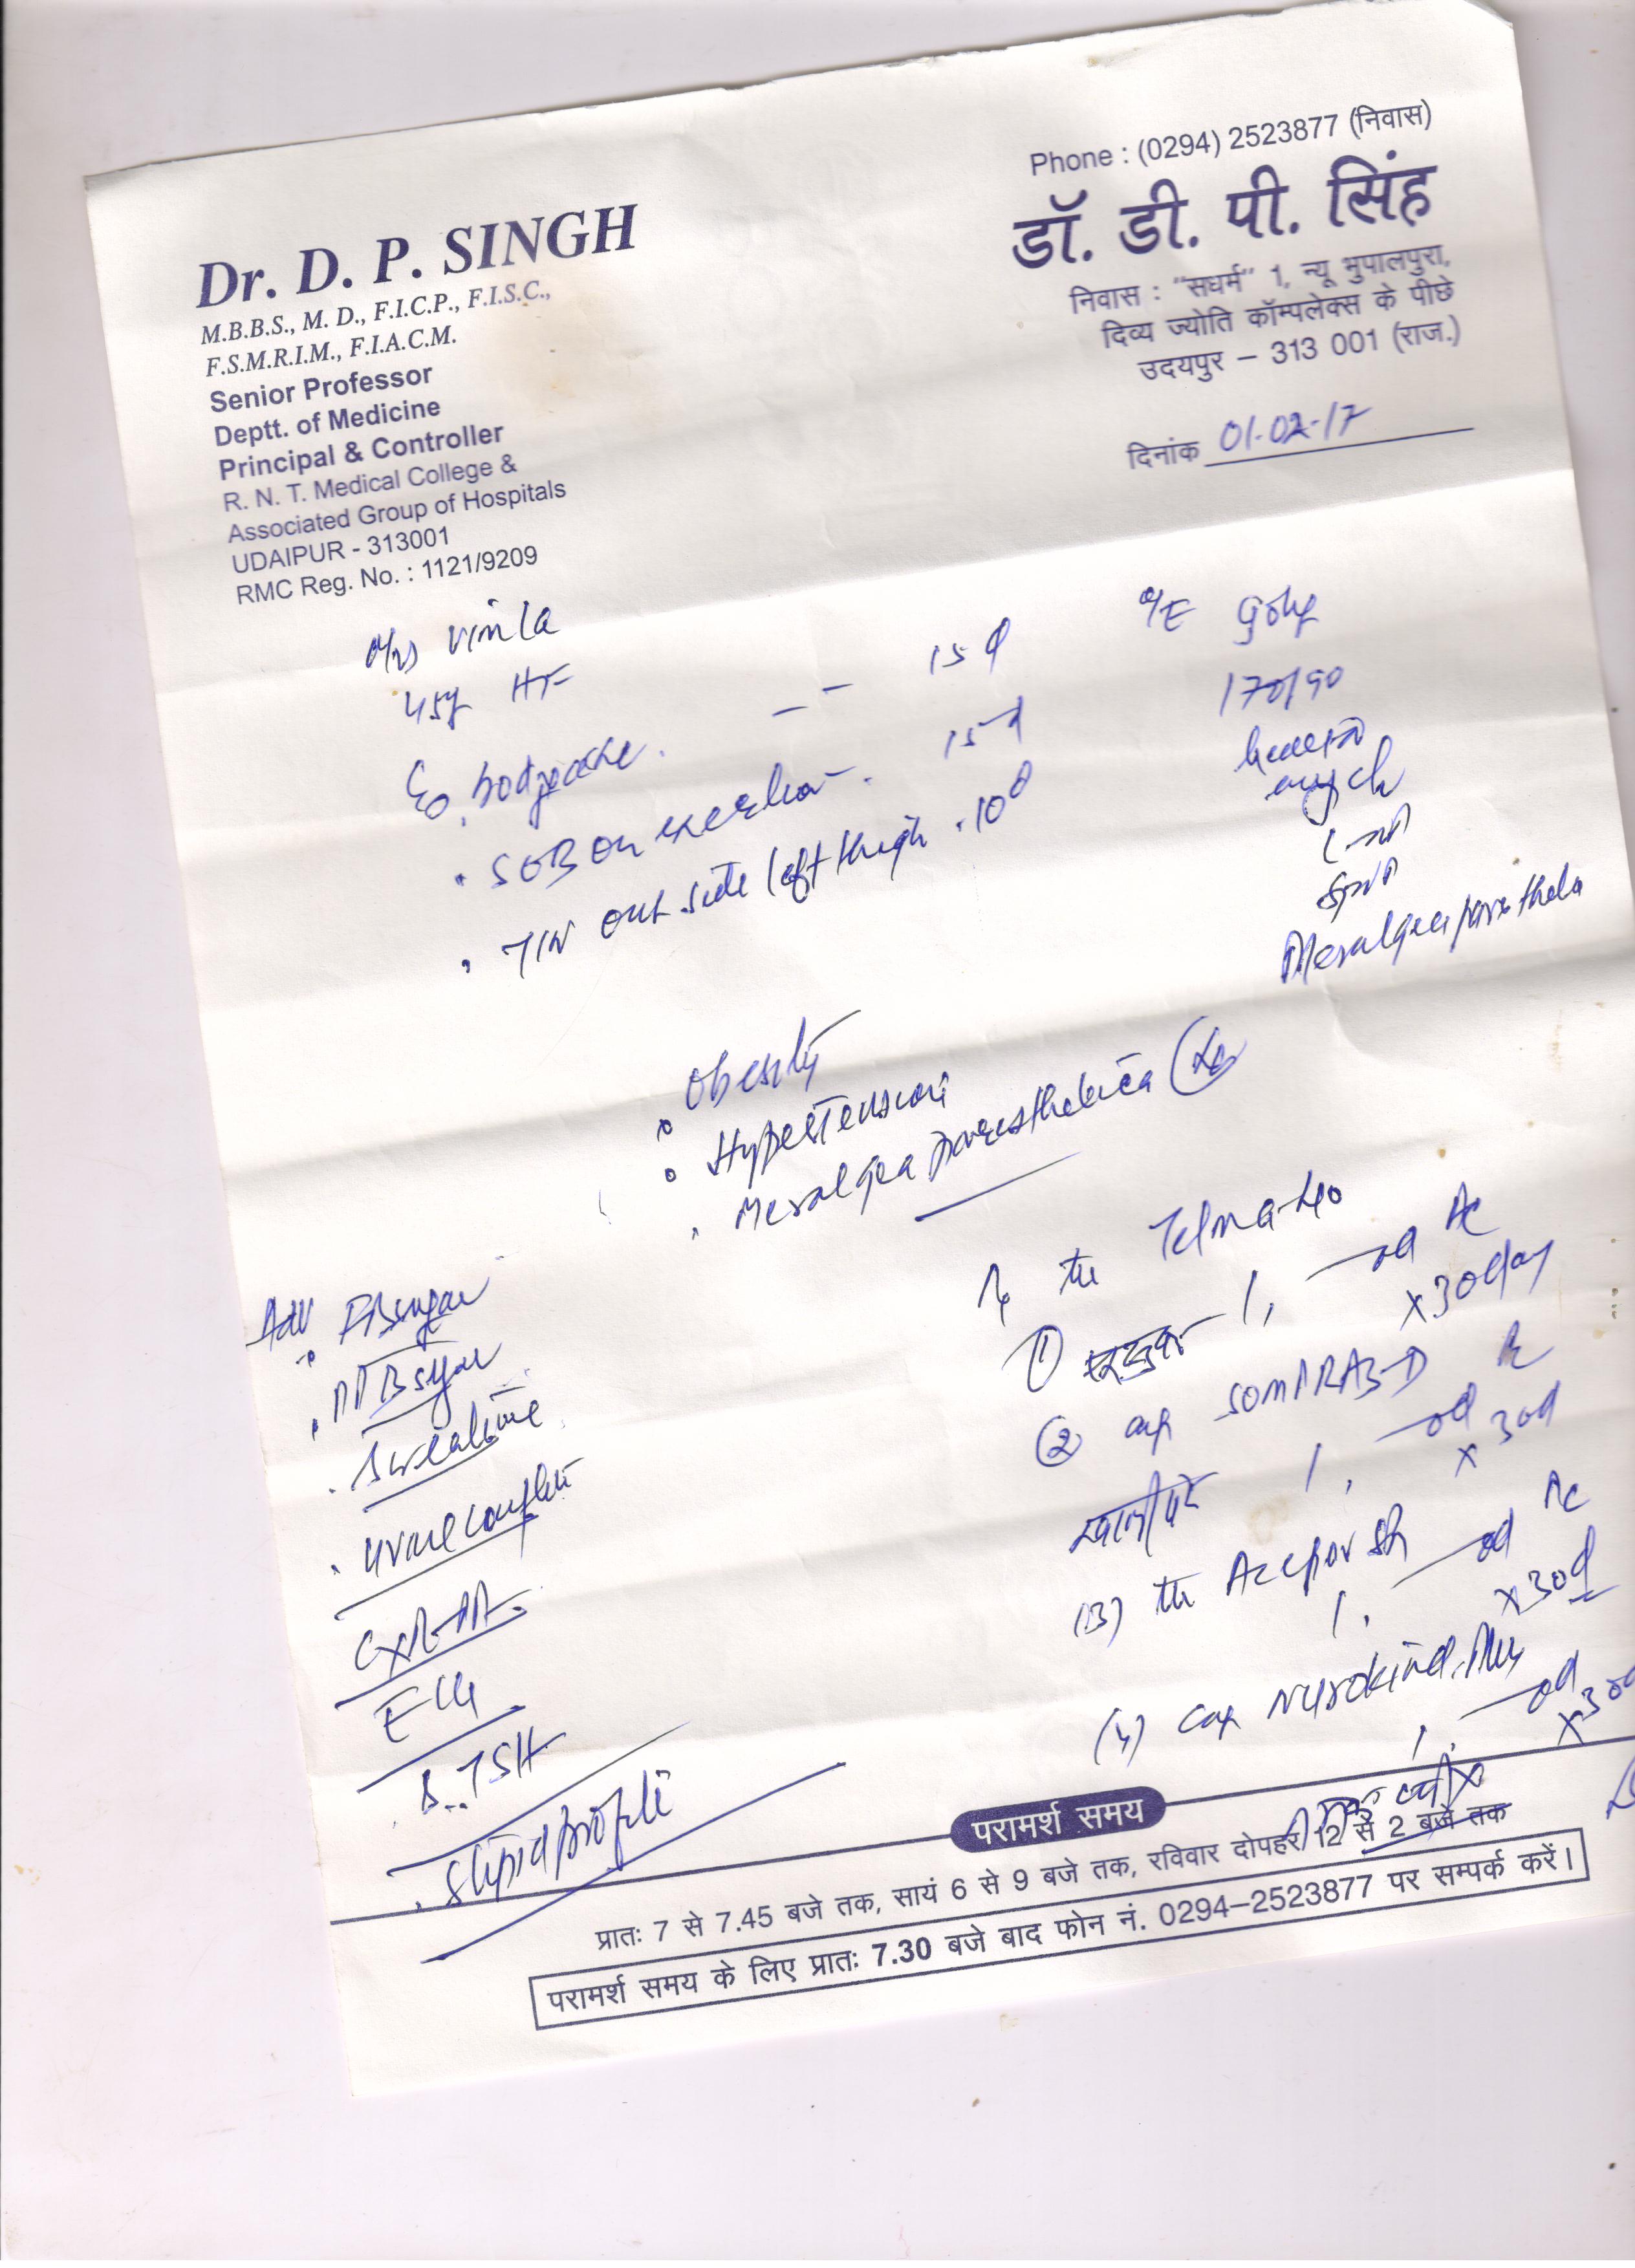 Phone : (0294) 2523877 (निवास)
Dr. D. P. SINGH
M.B.B.S., M. D., F.I.C.P., F.I.S.C.,
F.S.M.R.I.M., F.I.A.C.M.
Senior Professor
Deptt. of Medicine
Principal & Controller
R. N. T. Medical College &
Associated Group of Hospitals
UDAIPUR - 313001
RMC Reg. No. : 1121/9209
डॉ. डी. पी. सिंह
निवास : "सधर्म" 1, न्यू भुपालपुरा,
दिव्य ज्योति कॉम्पलेक्स के पीछे
उदयपुर – 313 001 (राज.)
दिनांक 01-02-17
Vimla
45y
bodyache. -- 15d
SOB on exertion. 15d
TIN out side left thigh . 10d
O/E
170/90
Meralgea
Obesity
Hypertension
Meralgea paraesthetica
Adv FBsugar
PPBsugar
Urine complete
CXR-PA
ECG
S.TSH
S lipid profile
Telma-40
① 1, od Ac
x30day
② cap SOMPRAZ-D
खाली पेट 1, od x 30d
(3) 1, od Ac
x30d
(4) cap Nurokind.Plus
1, od
परामर्श समय
प्रातः 7 से 7.45 बजे तक, सायं 6 से 9 बजे तक, रविवार दोपहर 12 से 2 बजे तक
परामर्श समय के लिए प्रातः 7.30 बजे बाद फोन नं. 0294–2523877 पर सम्पर्क करें।